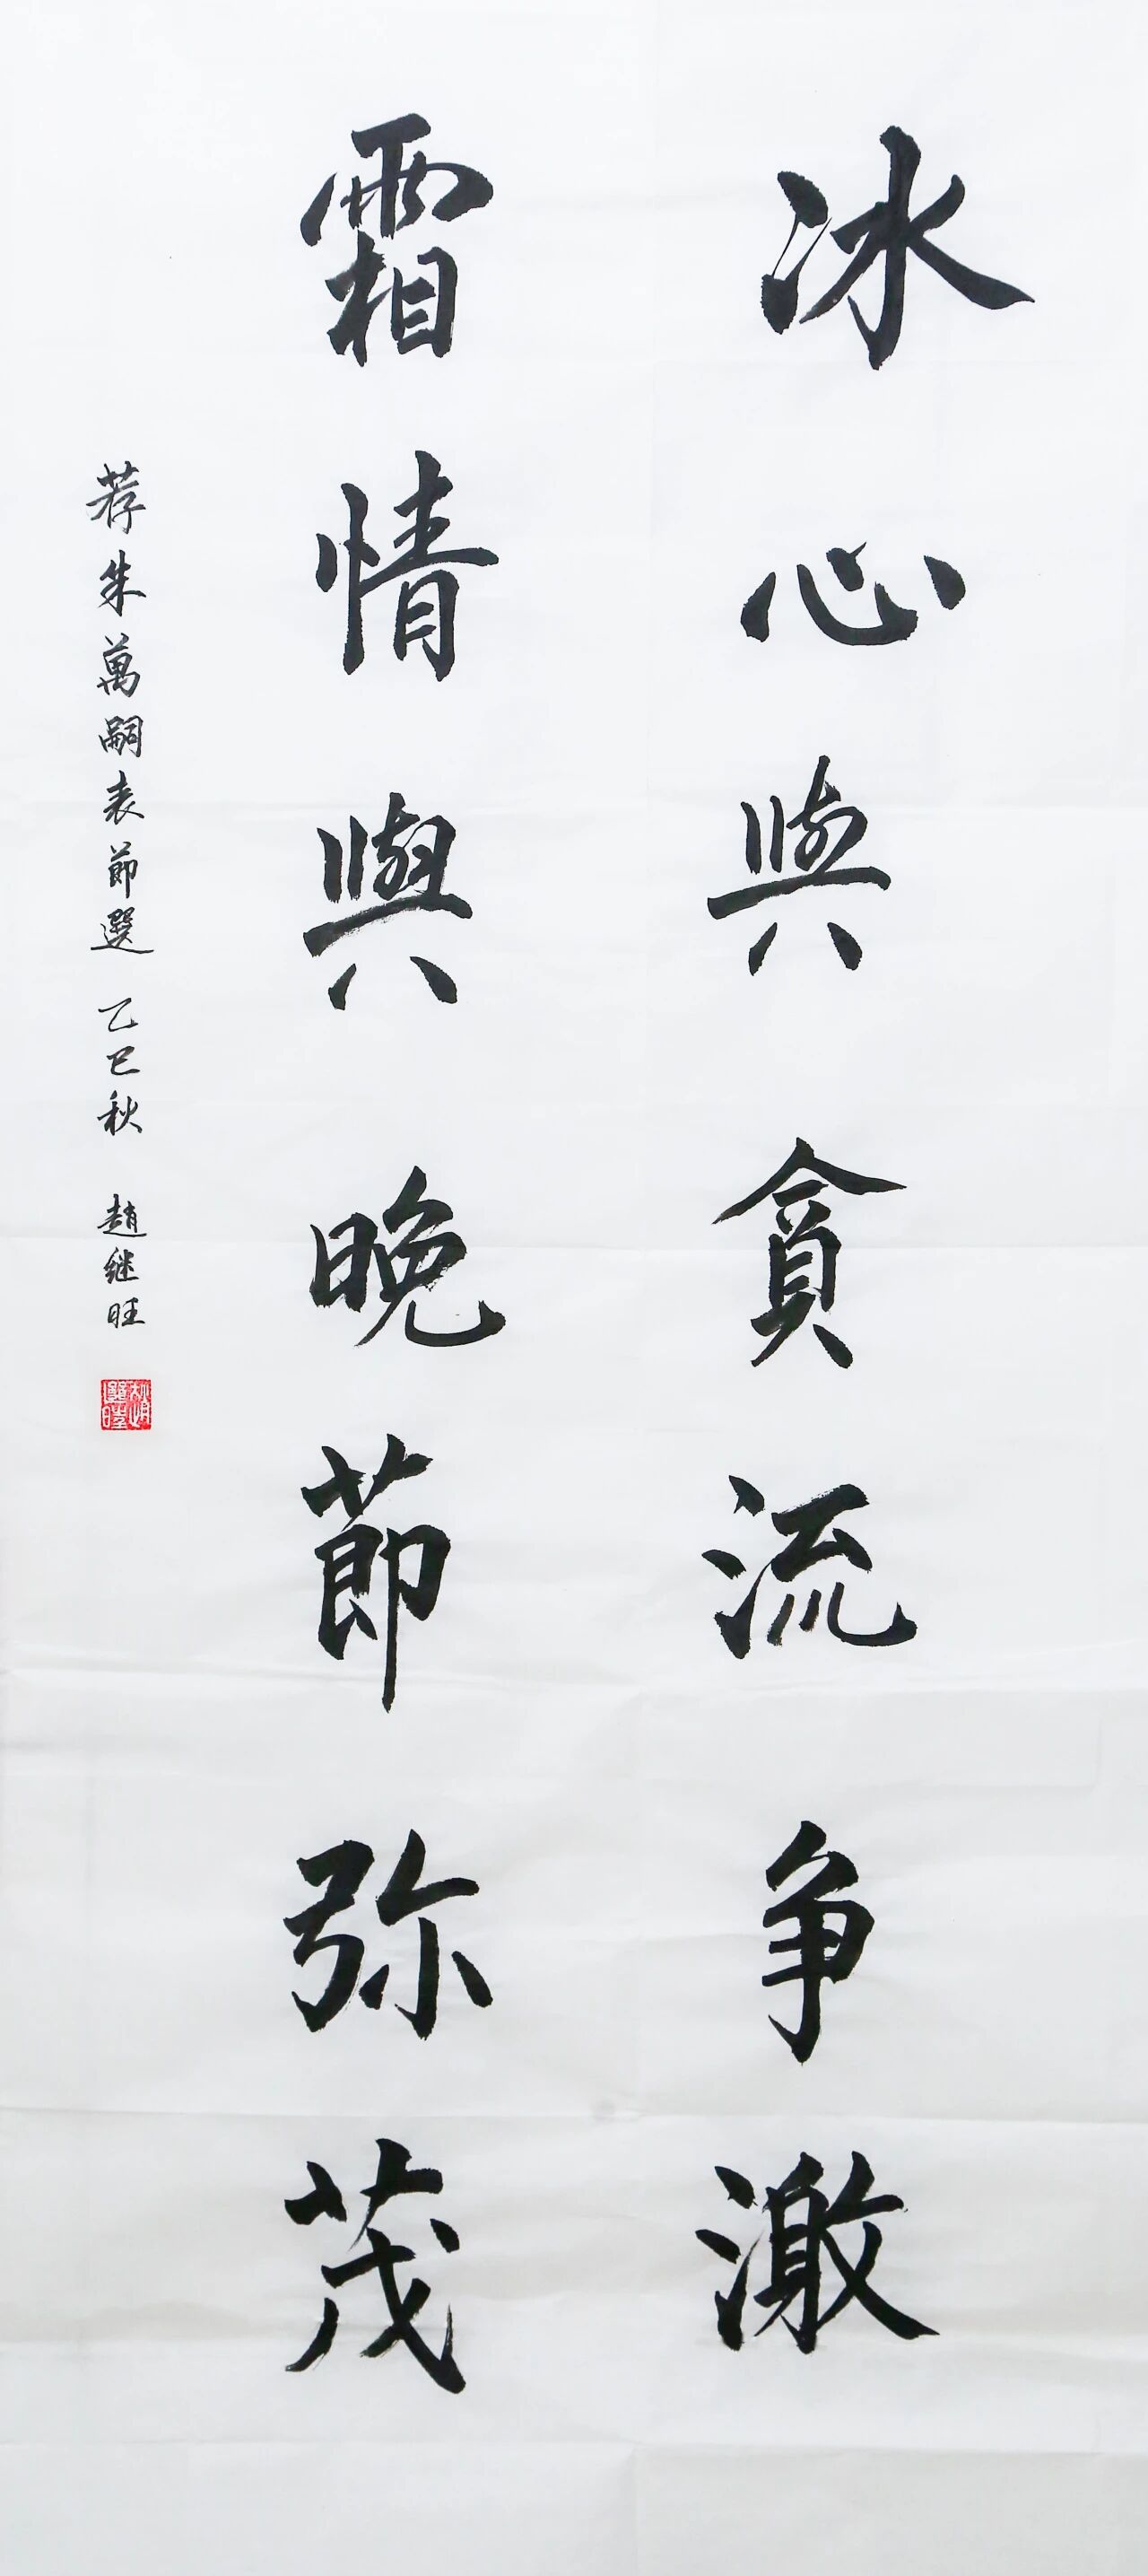 冰心與貪流争激
霜情與晚節弥茂
荐朱萬嗣表節選 乙巳秋 趙继旺